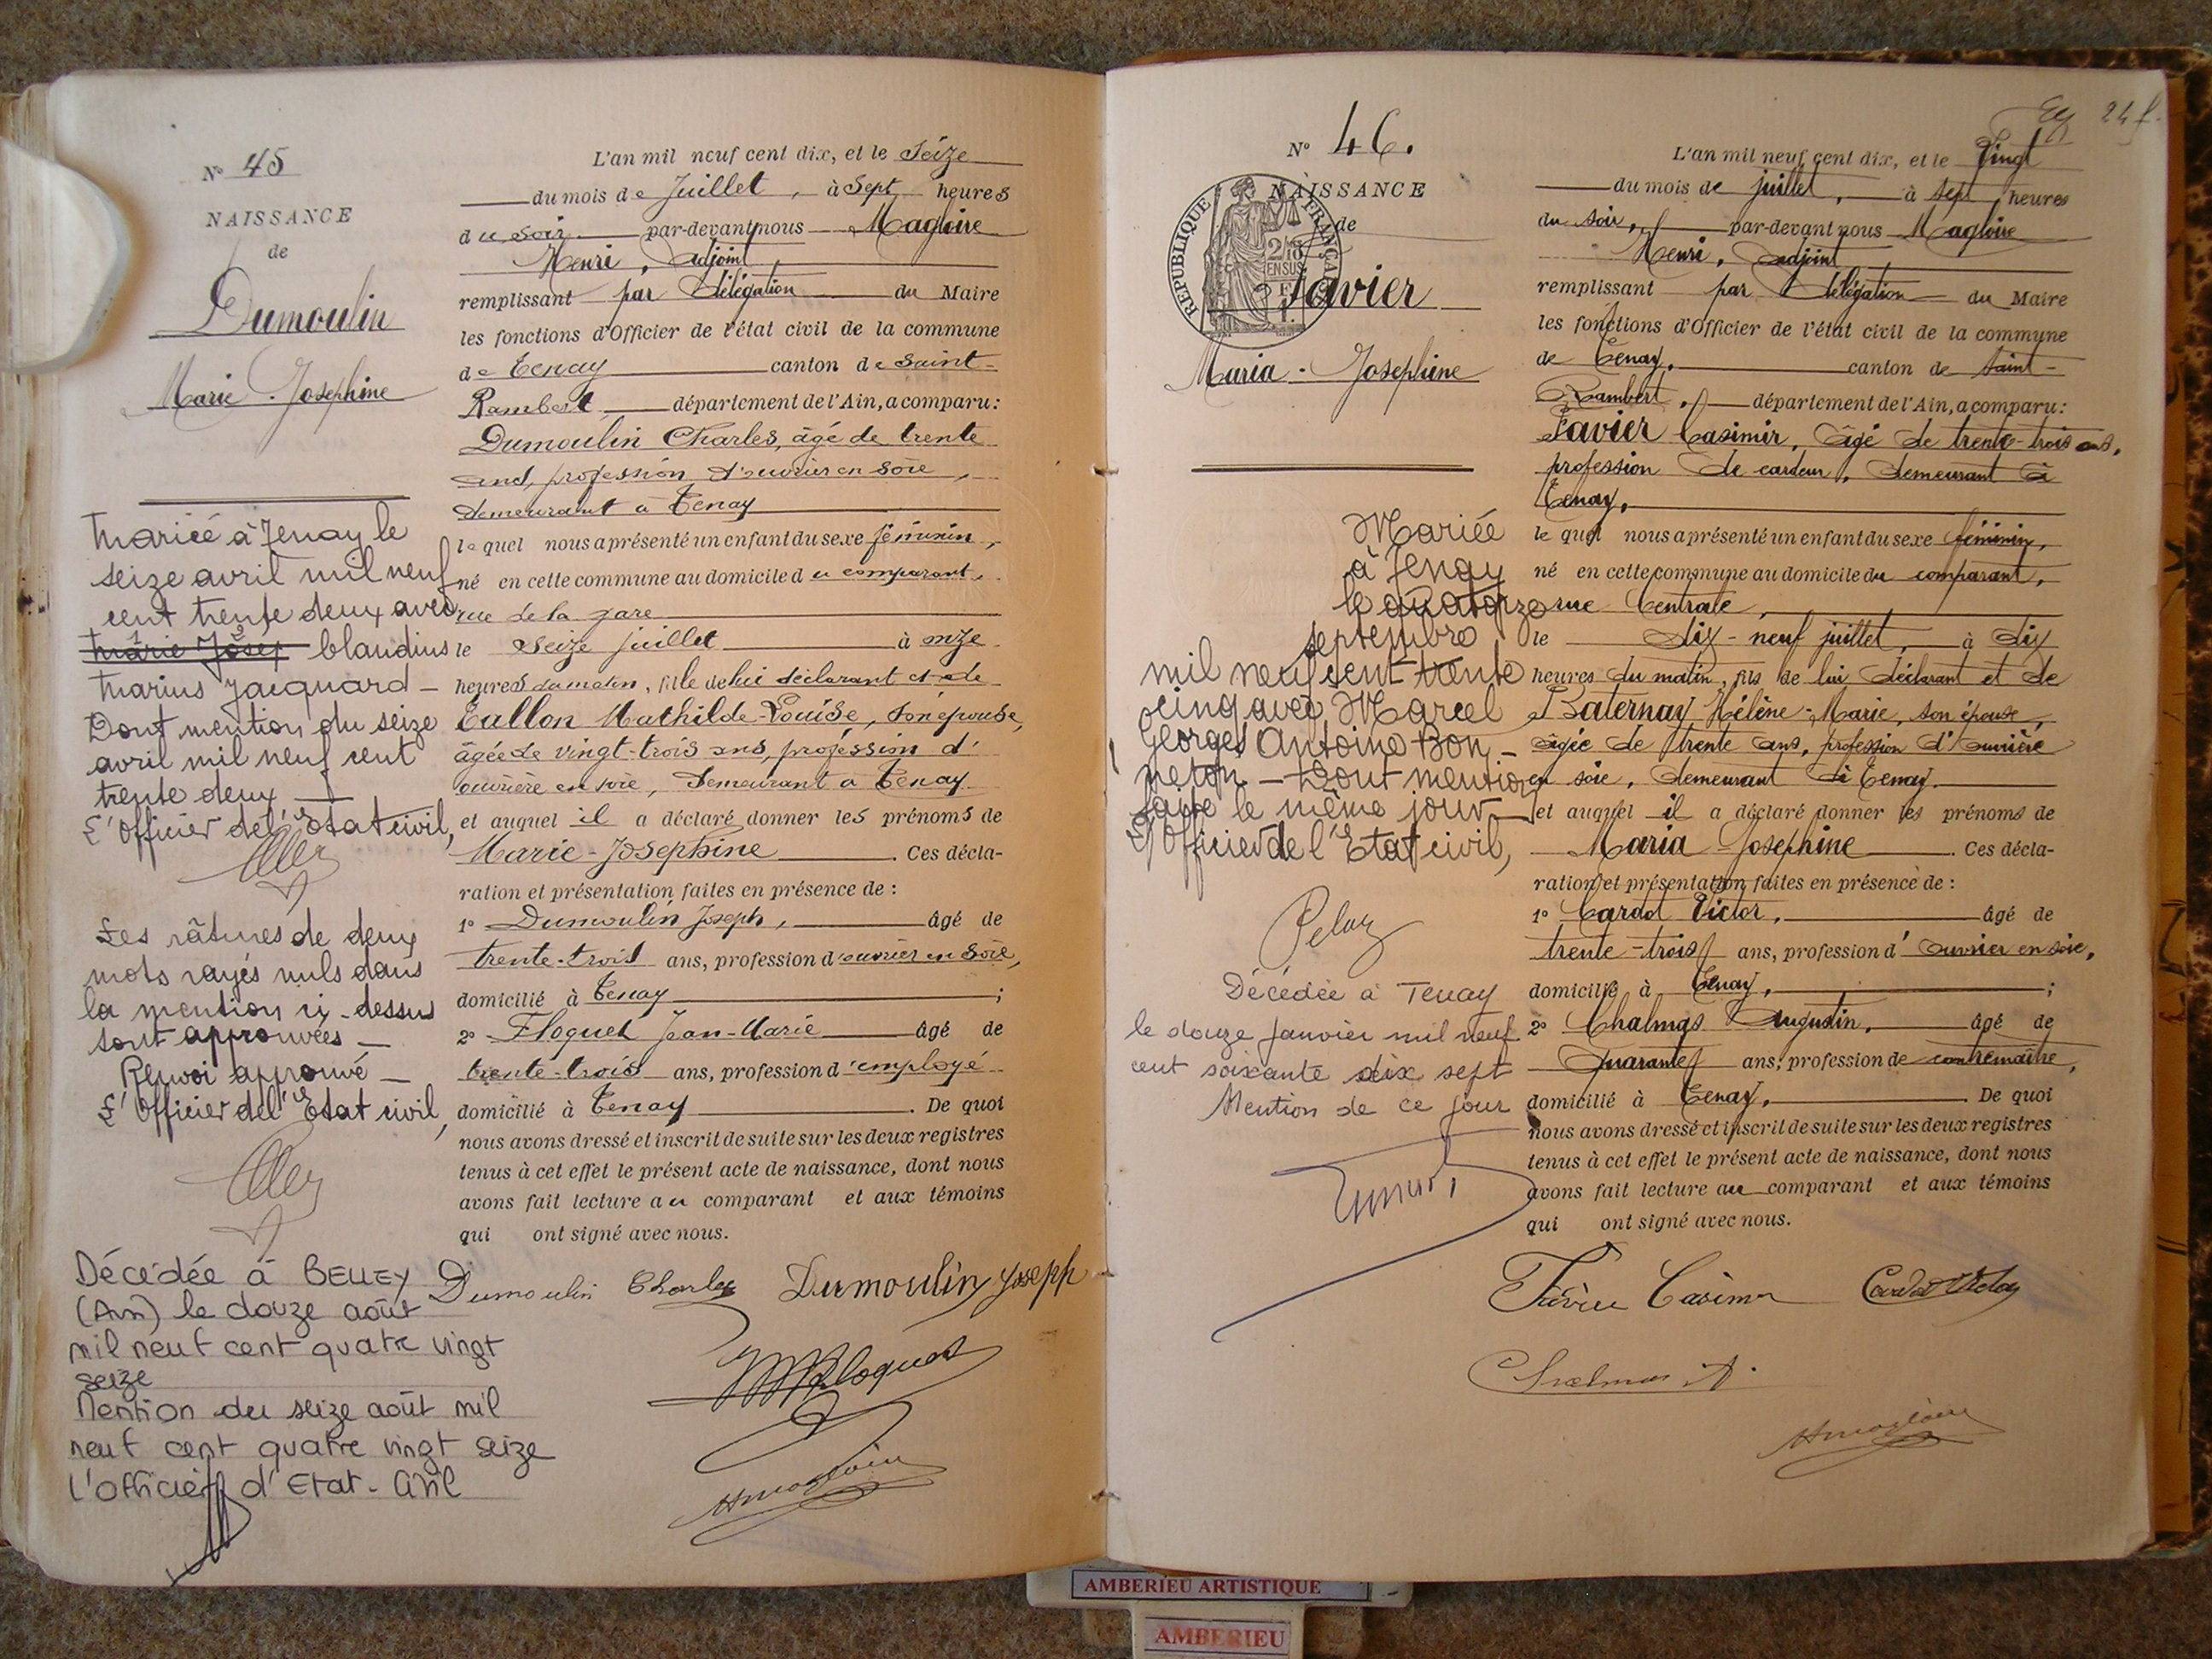 N° 45
NAISSANCE
de
Dumoulin
Marie-Josephine
Mariée à Tenay le
seize avril mil neuf
cent trente deux avec
Marie Josep Claudius
Marius Jacquard —
Dont mention du seize
avril mil neuf cent
trente deux —
L'Officier de l'Etat civil,
Les râtures de deux
mots rayés nuls dans
la mention ci-dessus
sont approuvées —
Renvoi approuvé —
L'Officier de l'Etat civil,
Décédée à BELLEY
(Ain) le douze août
mil neuf cent quatre vingt
seize
Mention du seize août mil
neuf cent quatre vingt seize
L'officier d'Etat-Civil
L'an mil neuf cent dix, et le Seize
du mois de Juillet, à Sept heures
du soir par-devant nous Magloire
Henri, adjoint,
remplissant par délégation du Maire
les fonctions d'Officier de l'état civil de la commune
de Tenay canton de Saint-
Rambert département de l'Ain, a comparu:
Dumoulin Charles, âgé de trente
ans, profession d'ouvrier en soie,
demeurant à Tenay
lequel nous a présenté un enfant du sexe féminin,
né en cette commune au domicile du comparant,
rue de la gare
le Seize juillet à onze
heures du matin, fille de lui déclarant et de
Eullon Mathilde-Louise, son épouse,
âgée de vingt-trois ans, profession d'
ouvrière en soie, demeurant à Tenay
et auquel il a déclaré donner les prénoms de
Marie-Josephine. Ces décla-
ration et présentation faites en présence de :
1° Dumoulin Joseph, âgé de
trente-trois ans, profession d'ouvrier en soie,
domicilié à Tenay ;
2° Floquet Jean-Marie âgé de
trente-trois ans, profession d'employé
domicilié à Tenay. De quoi
nous avons dressé et inscrit de suite sur les deux registres
tenus à cet effet le présent acte de naissance, dont nous
avons fait lecture au comparant et aux témoins
qui ont signé avec nous.
Dumoulin Charles Dumoulin Joseph
JM Floquet
Hmagloire
24 f.
N° 46.
NAISSANCE
de
RÉPUBLIQUE FRANÇAISE
2/10 EN SUS
Favier
Maria-Josephine
Mariée
à Tenay
le quatorze
septembre
mil neuf cent trente
cinq avec Marcel
Georges Antoine Bon-
neton — Dont mention
faite le même jour —
L'Officier de l'Etat civil,
Pelaz
Décédée à Tenay
le douze janvier mil neuf
cent soixante dix sept
Mention de ce jour
L'an mil neuf cent dix, et le Vingt
du mois de juillet, à sept heures
du soir, par-devant nous Magloire
Henri, adjoint
remplissant par délégation du Maire
les fonctions d'Officier de l'état civil de la commune
de Tenay, canton de Saint-
Rambert, département de l'Ain, a comparu:
Favier Casimir, âgé de trente-trois ans,
profession de cardeur, demeurant à
Tenay,
lequel nous a présenté un enfant du sexe féminin,
né en cette commune au domicile du comparant,
rue Centrale,
le dix-neuf juillet, à dix
heures du matin, fils de lui déclarant et de
Baternay Hélène-Marie, son épouse,
âgée de trente ans, profession d'ouvrière
en soie, demeurant à Tenay.
et auquel il a déclaré donner les prénoms de
Maria-Josephine. Ces décla-
ration et présentation faites en présence de :
1° Cardot Victor, âgé de
trente-trois ans, profession d'ouvrier en soie,
domicilié à Tenay, ;
2° Chalmas Augustin, âgé de
Quarante ans, profession de contremaître,
domicilié à Tenay, De quoi
nous avons dressé et inscrit de suite sur les deux registres
tenus à cet effet le présent acte de naissance, dont nous
avons fait lecture au comparant et aux témoins
qui ont signé avec nous.
Favier Casimir Cardot Victor
Chalmas A.
Hmagloire
AMBERIEU ARTISTIQUE
AMBERIEU